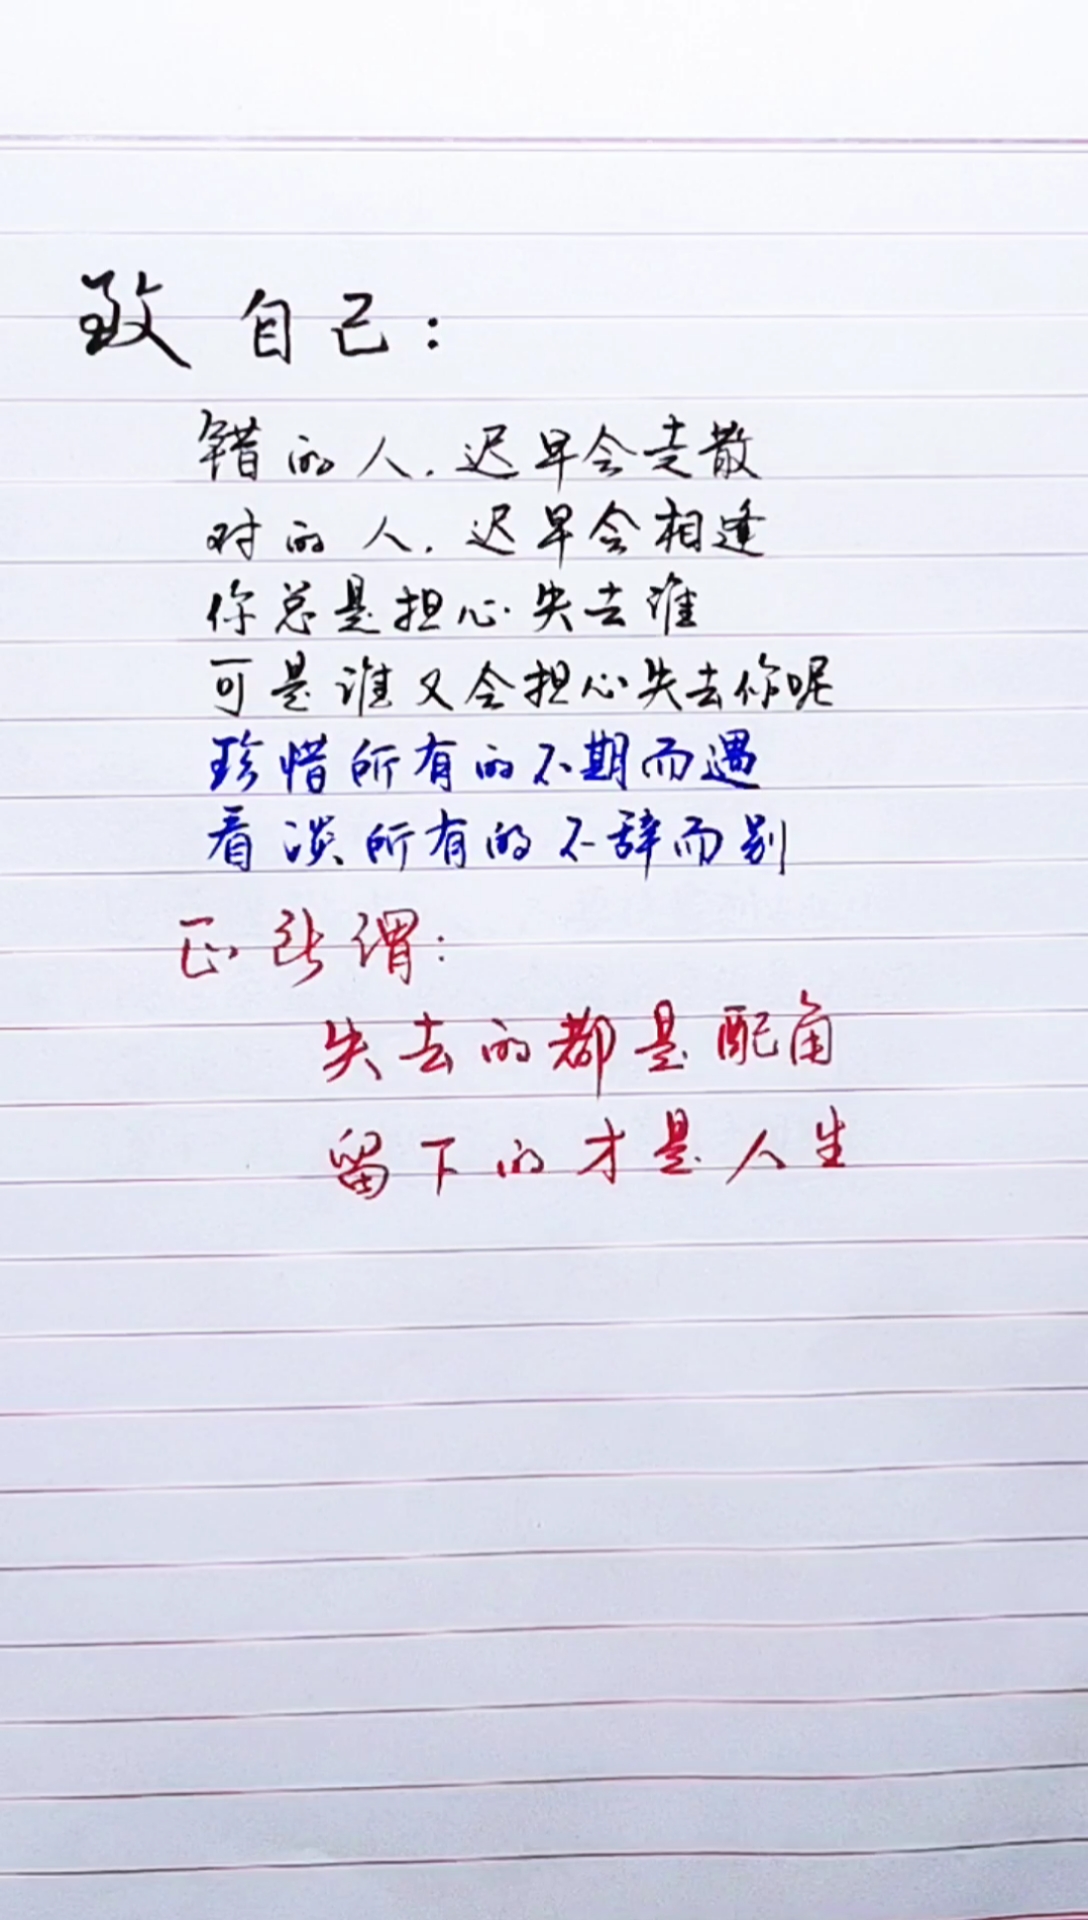 致自己：
错的人，迟早会走散
对的人，迟早会相逢
你总是担心失去谁
可是谁又会担心失去你呢
珍惜所有的不期而遇
看淡所有的不辞而别
正所谓：
失去的都是配角
留下的才是人生